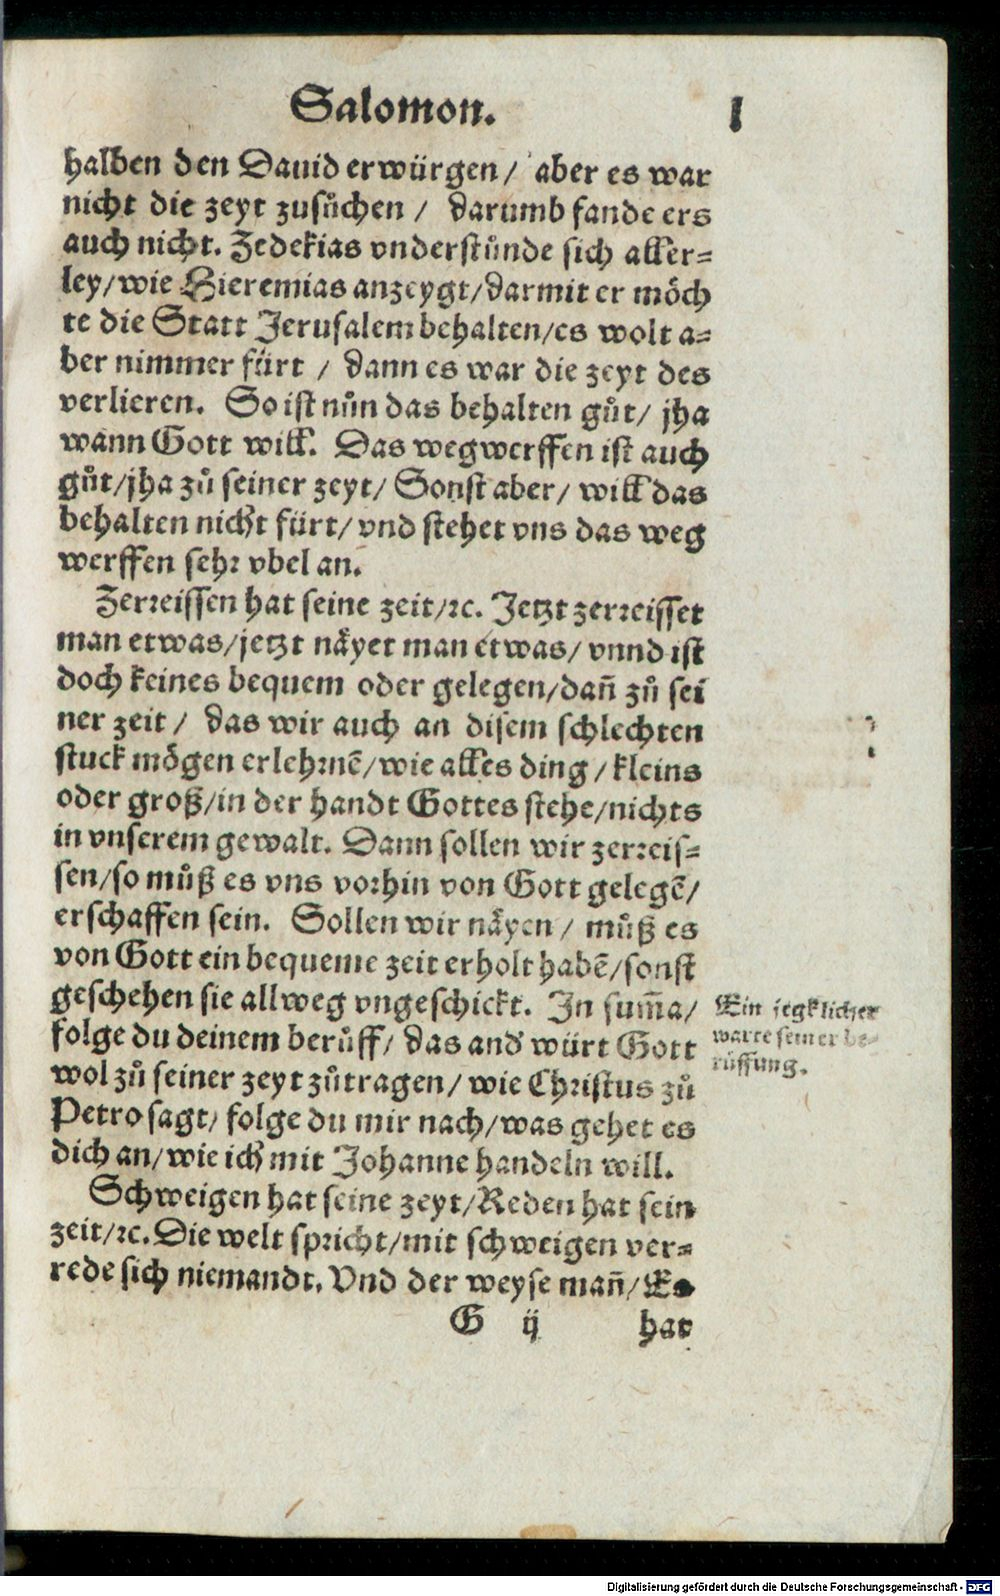 Salomon. l
halben den Dauid erwürgen / aber es war
nicht die zeyt zusůchen / darumb fande ers
auch nicht. Zedekias vnderstůnde sich aller⸗
ley/wie Hieremias anzeygt/darmit er möch
te die Statt Jerusalem behalten/es wolt a⸗
ber nimmer fürt / dann es war die zeyt des
verlieren. So ist nůn das behalten gůt/ jha
wann Gott will. Das wegwerffen ist auch
gůt/jha zů seiner zeyt/ Sonst aber/ will das
behalten nicht fürt/ vnd stehet vns das weg
werffen sehꝛ vbel an.
Zerꝛeissen hat seine zeit/ꝛc. Jetzt zerꝛeisset
man etwas/jetzt näyet man etwas/ vnnd ist
doch keines bequem oder gelegen/dañ zů sei
ner zeit / das wir auch an disem schlechten
stuck mögen erlehꝛnē/wie alles ding / kleins
oder groß/in der handt Gottes stehe/nichts
in vnserem gewalt. Dann sollen wir zerꝛeis⸗
sen/so můß es vns voꝛhin von Gott gelegē/
erschaffen sein. Sollen wir näyen / můß es
von Gott ein bequeme zeit erholt habē/sonst
geschehen sie allweg vngeschickt. In sum̄a/
folge du deinem berůff/ das and' würt Gott
wol zů seiner zeyt zůtragen/ wie Chꝛistus zů
Petro sagt/ folge du mir nach/was gehet es
dich an/wie ich mit Johanne handeln will.
Schweigen hat seine zeyt/Reden hat sein
zeit/ꝛc. Die welt spꝛicht/mit schweigen ver⸗
rede sich niemandt. Vnd der weyse mañ/ Es
G ij hat
Ein jegklicher
warte seiner be⸗
růffung.
Digitalisierung gefördert durch die Deutsche Forschungsgemeinschaft - DFG